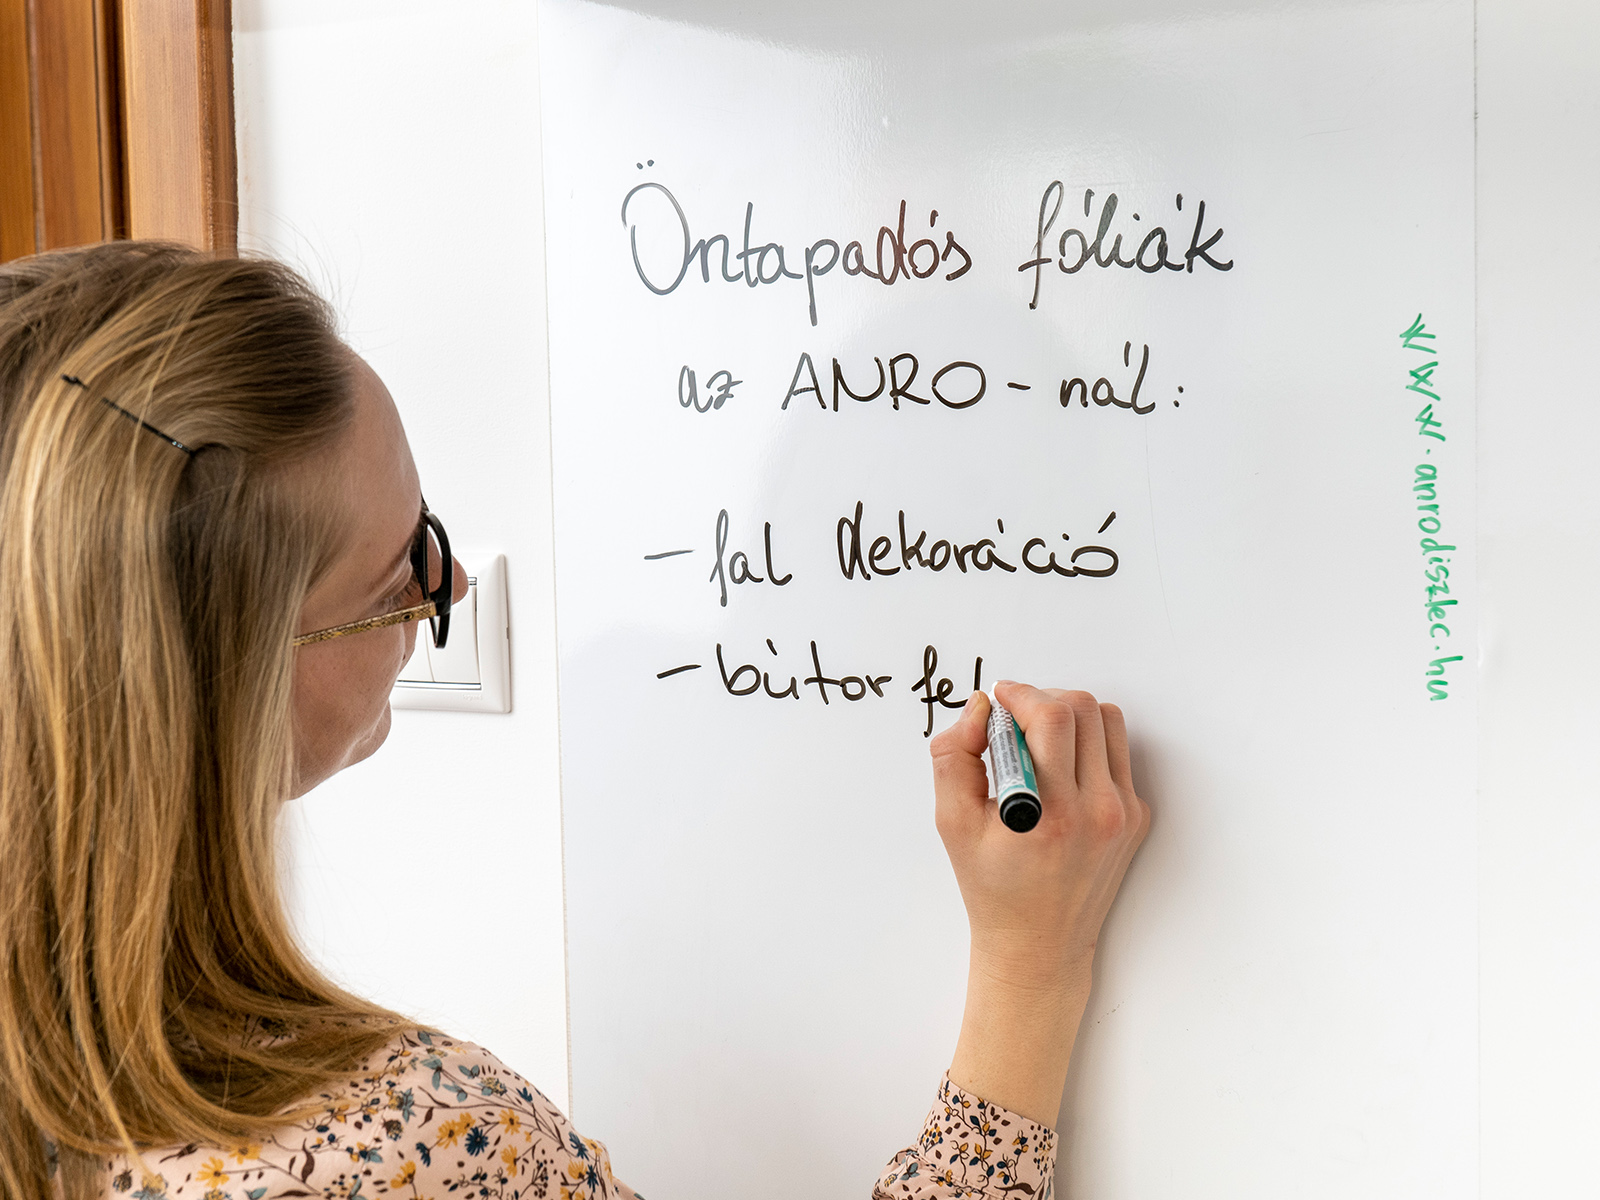 Öntapadós fóliák
az ANRO-nál:
- fal dekoráció
- bútor fel
www.anrodiszlec.hu